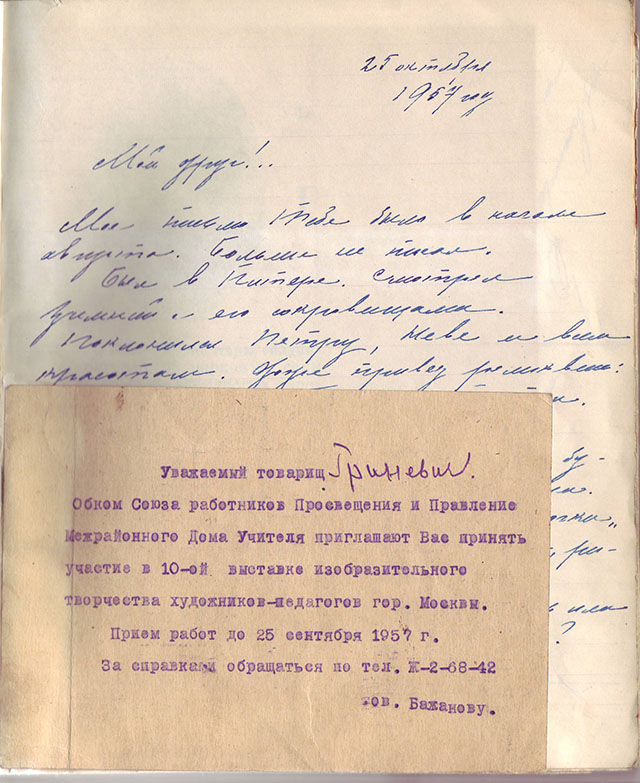 25 октября
1957 году
Мой друг!..
Мое письмо Тебе было в начале
августа. Больше не писал.
Был в Питере. Смотрел
Зимний с его сокровищами.
Поклонился Петру, Неве и всем
красотам. Даже привез
бу-
Уважаемый товарищ Гриневич.
Обком Союза работников Просвещения и Правление
Межрайонного Дома Учителя приглашают Вас принять
участие в 10-ой выставке изобразительного
творчества художников-педагогов гор. Москвы.
Прием работ до 25 сентября 1957 г.
За справками обращаться по тел. Ж-2-68-42
тов. Бажанову.
?